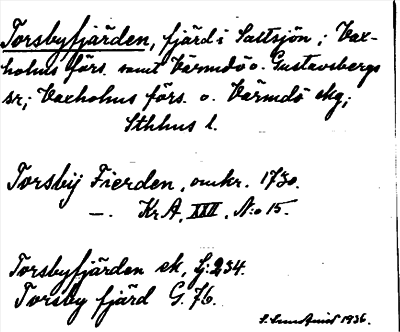 Torsbyfjärden, fjärd i Saltsjön; Vax-
holms förs. samt Värmdö o. Gustavsbergs
sr; Vaxholms förs. o. Värmdö skg;
Sthlms l.
Torsbij Fierden, omkr. 1730.
—. Kr.A, XXII, N:o 15.
Torsbyfjärden ek, Lj:234.
Torsby fjärd G. 76.
1936.